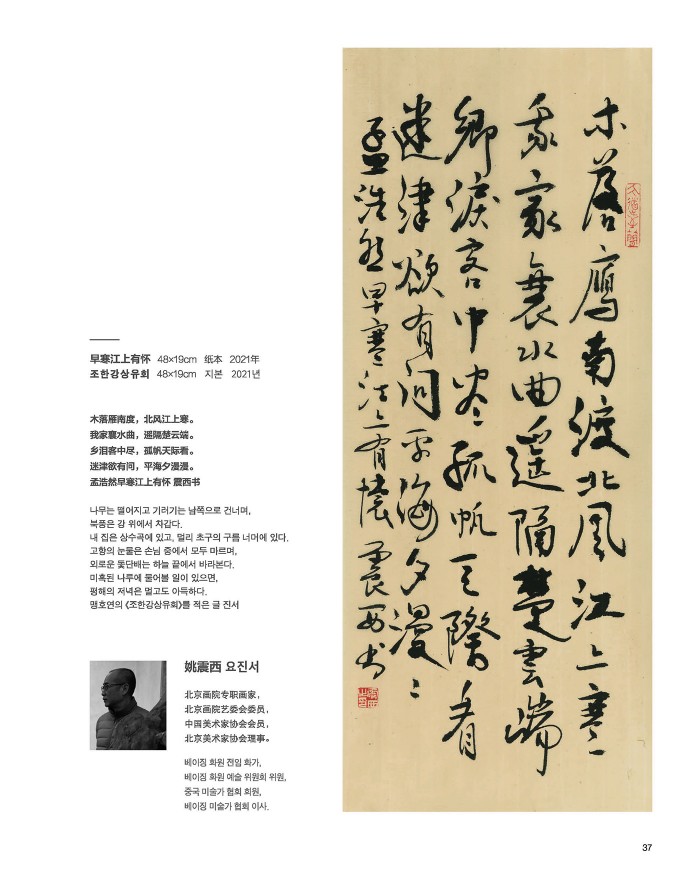 早寒江上有怀 48×19cm 纸本 2021年
조한강상유회 48×19cm 지본 2021년
木落雁南度，北风江上寒。
我家襄水曲，遥隔楚云端。
乡泪客中尽，孤帆天际看。
迷津欲有问，平海夕漫漫。
孟浩然早寒江上有怀 震西书
나무는 떨어지고 기러기는 남쪽으로 건너며,
북풍은 강 위에서 차갑다.
내 집은 상수곡에 있고, 멀리 초구의 구름 너머에 있다.
고향의 눈물은 손님 중에서 모두 마르며,
외로운 돛단배는 하늘 끝에서 바라본다.
미혹된 나루에 물어볼 일이 있으면,
평해의 저녁은 멀고도 아득하다.
맹호연의 《조한강상유회》를 적은 글 진서
姚震西 요진서
北京画院专职画家，
北京画院艺委会委员，
中国美术家协会会员，
北京美术家协会理事。
베이징 화원 전임 화가,
베이징 화원 예술 위원회 위원,
중국 미술가 협회 회원,
베이징 미술가 협회 이사.
木落鴈南渡北風江上寒
我家襄水曲遥隔楚雲端
鄉淚客中尽孤帆天際看
迷津欲有问平海夕漫漫
孟浩然早寒江上有懷震西书
37